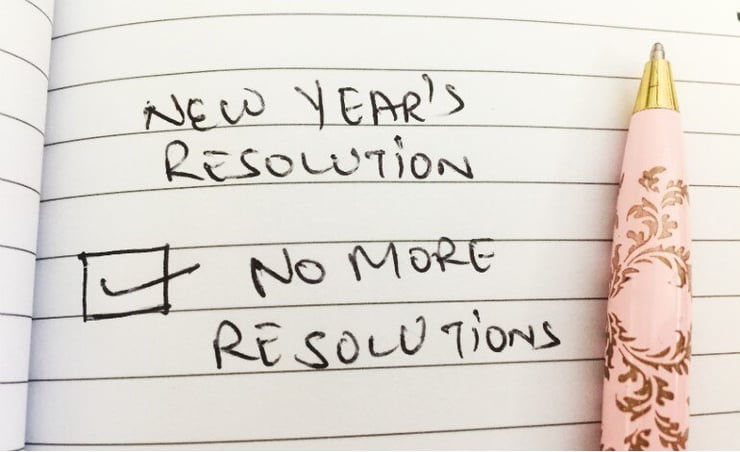 NEW YEAR'S
RESOLUTION
NO MORE
RESOLUTIONS